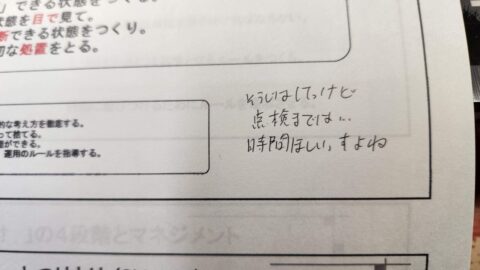 」できる状態をつくる。
状態を目で見て。
断できる状態をつくり。
切な処置をとる。
的な考え方を徹底する。
って捨てる。
運用のルールを指導する。
そうじはしてっけど
点検までは…
時間ほしいっすよね
」の4段階とマネジメント